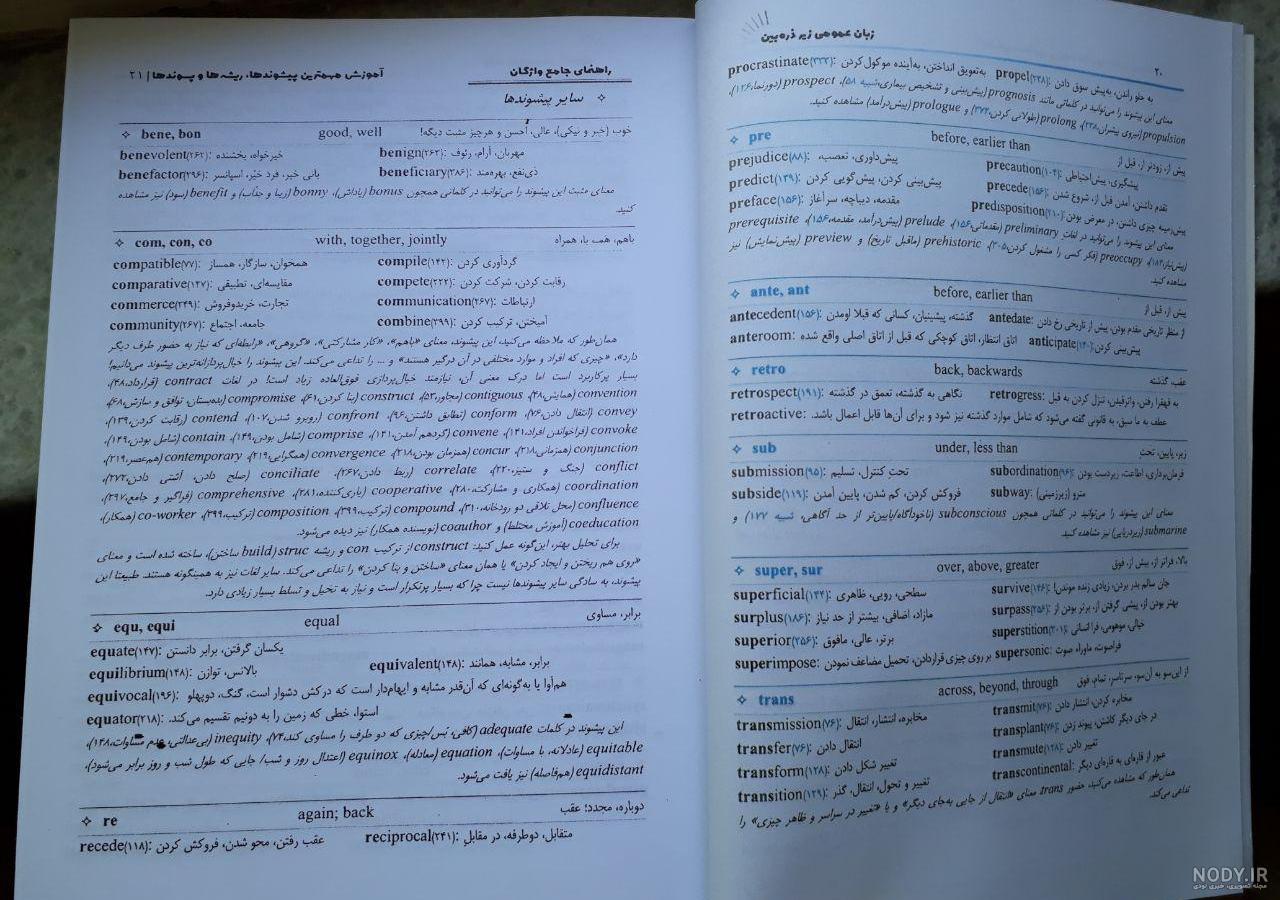 زبان عمومی زیر ذره‌بین
۲۰
procrastinate(۳۳۳): به‌تعویق انداختن، به‌آینده موکول کردن propel(۲۲۸): به جلو راندن، به‌پیش سوق دادن
معنای این پیشوند را می‌توانید در کلماتی مانند prognosis (پیش‌بینی و تشخیص بیماری، شبیه ۵۸)، prospect (دورنما،۱۲۶)،
propulsion (نیروی پیشران،۲۲۸)، prolong (طولانی کردن،۳۷۴) و prologue (پیش‌درآمد) مشاهده کنید.
✧ pre before, earlier than پیش از، زودتر از، قبل از
prejudice(۸۸): پیش‌داوری، تعصب precaution(۱۰۴): پیشگیری، پیش‌احتیاطی
predict(۱۳۹): پیش‌بینی کردن، پیش‌گویی کردن precede(۱۵۶): تقدم داشتن، آمدن قبل از، شروع شدن
preface(۱۵۶): مقدمه، دیباچه، سرآغاز predisposition(۲۱۰): پیش‌زمینه چیزی داشتن، در معرض بودن
معنای این پیشوند را می‌توانید در لغات preliminary (مقدماتی،۱۵۶)، prelude (پیش‌درآمد، مقدمه،۱۵۶)، prerequisite
(پیش‌نیاز،۱۸۲)، preoccupy (فکر کسی را مشغول کردن،۳۰۵)، prehistoric (ماقبل تاریخ) و preview (پیش‌نمایش) نیز
مشاهده کنید.
✧ ante, ant before, earlier than پیش از، قبل از
antecedent(۱۵۶): گذشته، پیشینیان، کسانی که قبلا اومدن antedate: از منظر تاریخی مقدم بودن، پیش از تاریخی رخ دادن
anteroom: اتاق انتظار، اتاق کوچکی که قبل از اتاق اصلی واقع شده anticipate(۱۴۰): پیش‌بینی کردن
✧ retro back, backwards عقب، گذشته
retrospect(۱۹۱): نگاهی به گذشته، تعمق در گذشته retrogress: به قهقرا رفتن، واترقیدن، تنزل کردن به قبل
retroactive: عطف به ما سبق، به قانونی گفته می‌شود که شامل موارد گذشته نیز شود و برای آن‌ها قابل اعمال باشد.
✧ sub under, less than زیر، پایین، تحت
submission(۹۵): تحت کنترل، تسلیم subordination(۹۶): فرمان‌برداری، اطاعت، زیردست بودن
subside(۱۱۹): فروکش کردن، کم شدن، پایین آمدن subway: مترو (زیرزمینی)
معنای این پیشوند را می‌توانید در کلماتی همچون subconscious (ناخودآگاه/پایین‌تر از حد آگاهی، شبیه ۱۷۷) و
submarine (زیردریایی) نیز مشاهده کنید.
✧ super, sur over, above, greater بالا، فراتر از، بیش از، فوق
superficial(۱۴۴): سطحی، رویی، ظاهری survive(۱۴۶): جان سالم بدر بردن، زیادی زنده موندن!
surplus(۱۸۶): مازاد، اضافی، بیشتر از حد نیاز surpass(۲۵۶): بهتر بودن از، پیشی گرفتن از، برتر بودن از
superior(۲۵۶): برتر، عالی، مافوق superstition(۳۰۱): خیالی، موهومی، فرا انسانی
superimpose: بر روی چیزی قراردادن، تحمیل مضاعف نمودن supersonic: فراصوت، ماوراء صوت
✧ trans across, beyond, through از این‌سو به آن‌سو، سرتاسر، تمام، فوق
transmission(۷۶): مخابره، انتشار، انتقال transmit(۷۶): مخابره کردن، انتشار دادن
transfer(۷۶): انتقال دادن transplant(۷۶): در جای دیگر کاشتن، پیوند زدن
transform(۱۲۸): تغییر شکل دادن transmute(۱۲۸): تغییر دادن
transition(۱۲۹): تغییر و تحول، انتقال، گذر transcontinental: عبور از قاره‌ای به قاره‌ای دیگر
همان‌طور که مشاهده می‌کنید، حضور trans معنای «انتقال از جایی به‌جای دیگر» و یا «تغییر در سراسر و ظاهر چیزی» را
تداعی می‌کند.
راهنمای جامع واژگان
آموزش مهمترین پیشوندها، ریشه‌ها و پسوندها | ۲۱
✧ سایر پیشوندها
✧ bene, bon good, well خوب (خیر و نیکی)، عالی، اَحسن و هرچیز مثبت دیگه!
benevolent(۲۶۲): خیرخواه، بخشنده benign(۲۶۲): مهربان، آرام، رئوف
benefactor(۲۹۶): بانی خیر، فرد خیّر، اسپانسر beneficiary(۳۸۶): ذی‌نفع، بهره‌مند
معنای مثبت این پیشوند را می‌توانید در کلماتی همچون bonus (پاداش)، bonny (زیبا و جذاب) و benefit (سود) نیز مشاهده
کنید.
✧ com, con, co with, together, jointly باهم، همه با، همراه
compatible(۷۷): همخوان، سازگار، همساز compile(۱۴۲): گردآوری کردن
comparative(۱۲۷): مقایسه‌ای، تطبیقی compete(۲۲۲): رقابت کردن، شرکت کردن
commerce(۲۴۹): تجارت، خریدوفروش communication(۲۶۷): ارتباطات
community(۲۶۷): جامعه، اجتماع combine(۳۹۹): آمیختن، ترکیب کردن
همان‌طور که ملاحظه می‌کنید، این پیشوند، معنای «باهم»، «کار مشارکتی»، «گروهی»، «رابطه‌ای که نیاز به حضور طرف دیگر
دارد»، «چیزی که افراد و موارد مختلفی در آن درگیر هستند» و ... را تداعی می‌کند. این پیشوند را خیال‌پردازانه‌ترین پیشوند می‌دانیم!
بسیار پرکاربرد است اما درک معنی آن، نیازمند خیال‌پردازی فوق‌العاده زیاد است! در لغات contract (قرارداد،۴۸)،
convention (همایش،۴۸)، contiguous (مجاور،۵۳)، construct (بنا کردن،۶۱)، compromise (بده‌بستان، توافق و سازش،۶۸)،
convey (انتقال دادن،۷۶)، conform (تطابق داشتن،۹۶)، confront (روبرو شدن،۱۰۷)، contend (رقابت کردن،۱۳۹)،
convoke (فراخواندن افراد،۱۴۱)، convene (گردهم آمدن،۱۴۱)، comprise (شامل بودن،۱۴۹)، contain (شامل بودن،۱۴۹)،
conjunction (همزمانی،۲۱۸)، concur (همزمان بودن،۲۱۸)، convergence (همگرایی،۲۱۹)، contemporary (هم‌عصر،۲۱۹)،
conflict (جنگ و ستیز،۲۲۰)، correlate (ربط دادن،۲۶۷)، conciliate (صلح دادن، آشتی دادن،۲۷۲)،
coordination (همکاری و مشارکت،۲۸۰)، cooperative (یاری‌کننده،۲۸۱)، comprehensive (فراگیر و جامع،۲۹۷)،
confluence (محل تلاقی دو رودخانه،۳۱۰)، compound (ترکیب،۳۹۹)، composition (ترکیب،۳۹۹)، co-worker (همکار)،
coeducation (آموزش مختلط) و coauthor (نویسنده همکار) نیز دیده می‌شود.
برای تحلیل بهتر، این‌گونه عمل کنید: construct از ترکیب con و ریشه struc (build ساختن)، ساخته شده است و معنای
«روی هم ریختن و ایجاد کردن» یا همان معنای «ساختن و بنا کردن» را تداعی می‌کند. سایر لغات نیز به همینگونه هستند. طبیعتا این
پیشوند، به سادگی سایر پیشوندها نیست چرا که بسیار پرتکرار است و نیاز به تحیل و تسلط بسیار زیادی دارد.
✧ equ, equi equal برابر، مساوی
equate(۱۴۷): یکسان گرفتن، برابر دانستن
equilibrium(۱۴۸): بالانس، توازن equivalent(۱۴۸): برابر، مشابه، همانند
equivocal(۱۹۶): هم‌آوا یا به‌گونه‌ای که آن‌قدر مشابه و ابهام‌دار است که درکش دشوار است، گنگ، دوپهلو
equator(۲۱۸): استوا، خطی که زمین را به دونیم تقسیم می‌کند.
این پیشوند در کلمات adequate (کافی، بَس/چیزی که دو طرف را مساوی کند،۷۴)، inequity (بی‌عدالتی، عدم مساوات،۱۴۸)،
equitable (عادلانه، با مساوات)، equation (معادله)، equinox (اعتدال روز و شب/ جایی که طول شب و روز برابر می‌شود)،
equidistant (هم‌فاصله) نیز یافت می‌شود.
✧ re again; back دوباره، مجدد؛ عقب
recede(۱۱۸): عقب رفتن، محو شدن، فروکش کردن reciprocal(۲۴۱): متقابل، دوطرفه، در مقابلِ
NODY.IR
مجله تصویری، خبری نودی